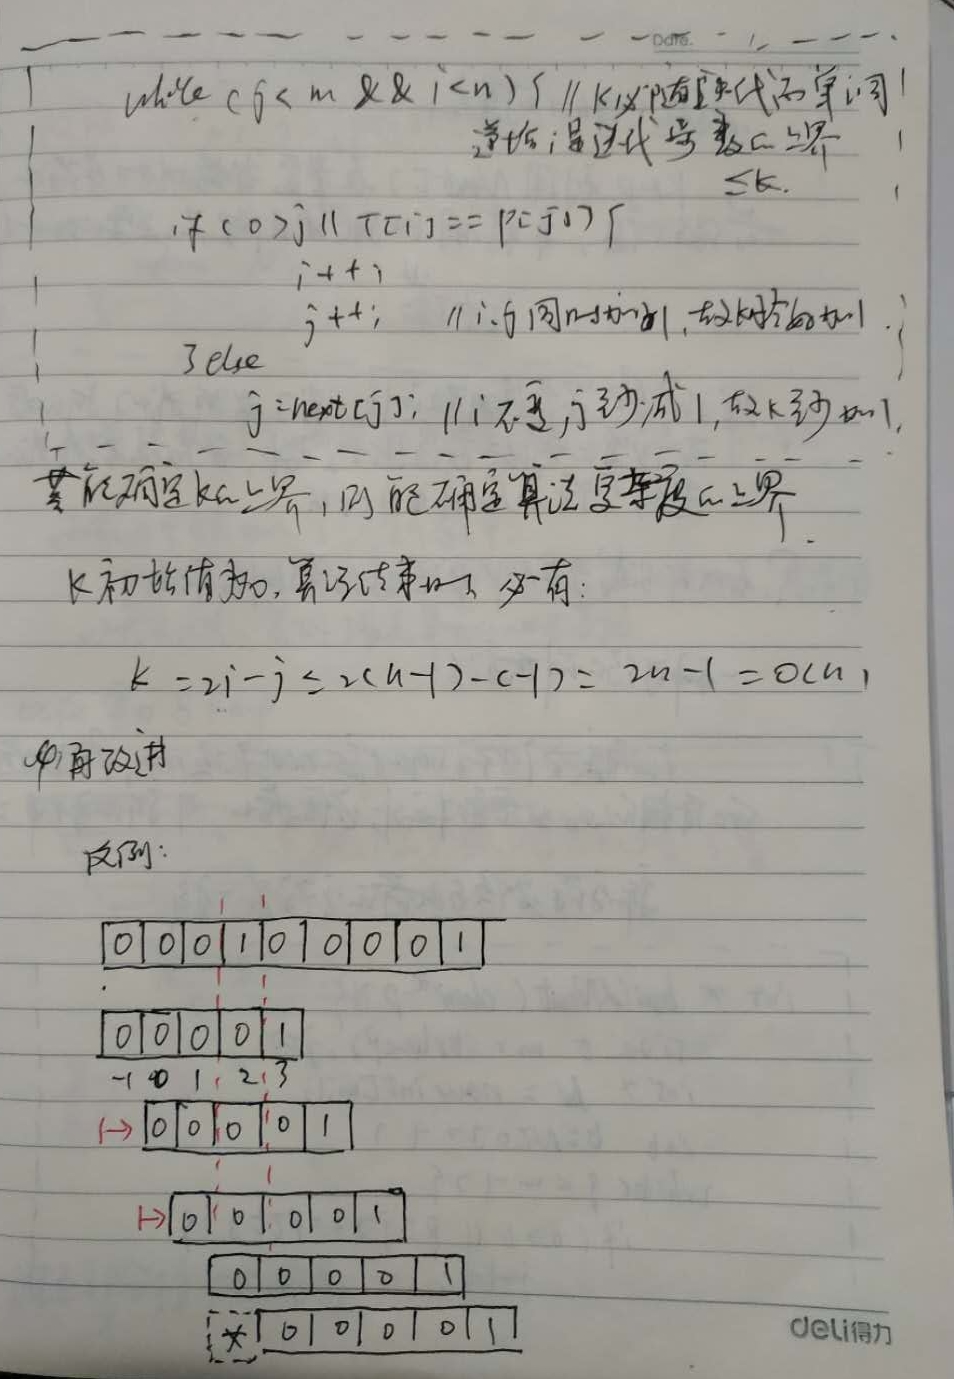 Date.
while (j < m && i < n) { // k必随迭代而单调
递增,是迭代步数的上界
≤k.
if (0 > j || T[i] == P[j]) {
i++;
j++; // i、j同时加1,故k恰好加1
} else
j = next[j]; // i不变,j至少减1,故k至少加1.
若能确定k的上界,则能确定算法复杂度的上界.
k初始值为0,算法结束时必有:
k = 2i - j ≤ 2(n-1) - (-1) = 2n - 1 = O(n)
再改进
反例:
0 0 0 1 0 0 0 0 1
0 0 0 0 1
-1 0 1 2 3
0 0 0 0 1
0 0 0 0 1
0 0 0 0 1
* 0 0 0 0 1
deli得力